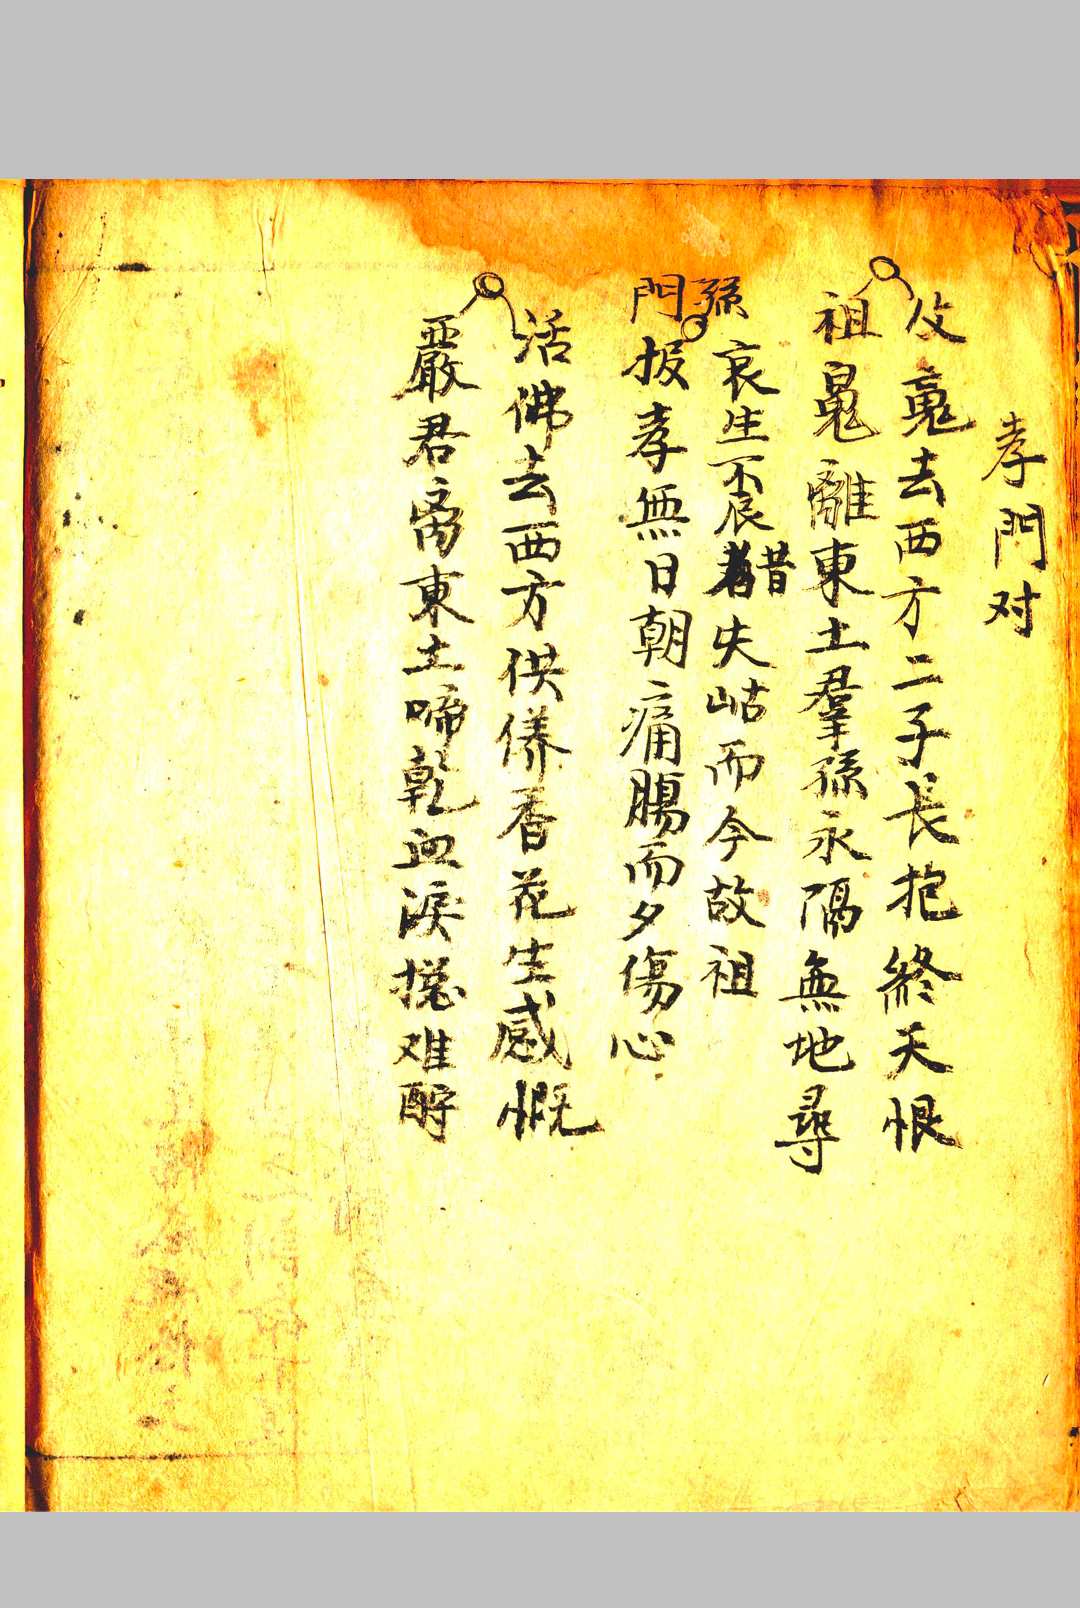 孝門对
父䰟去西方二子長抱終天恨
祖䰟離東土羣孫永隔無地尋
孫哀生不辰昔失岵而今故祖
門扳孝無日朝痛腸而夕傷心
活佛去西方供養香花生感慨
嚴君离東土啼乾血淚搃难酧